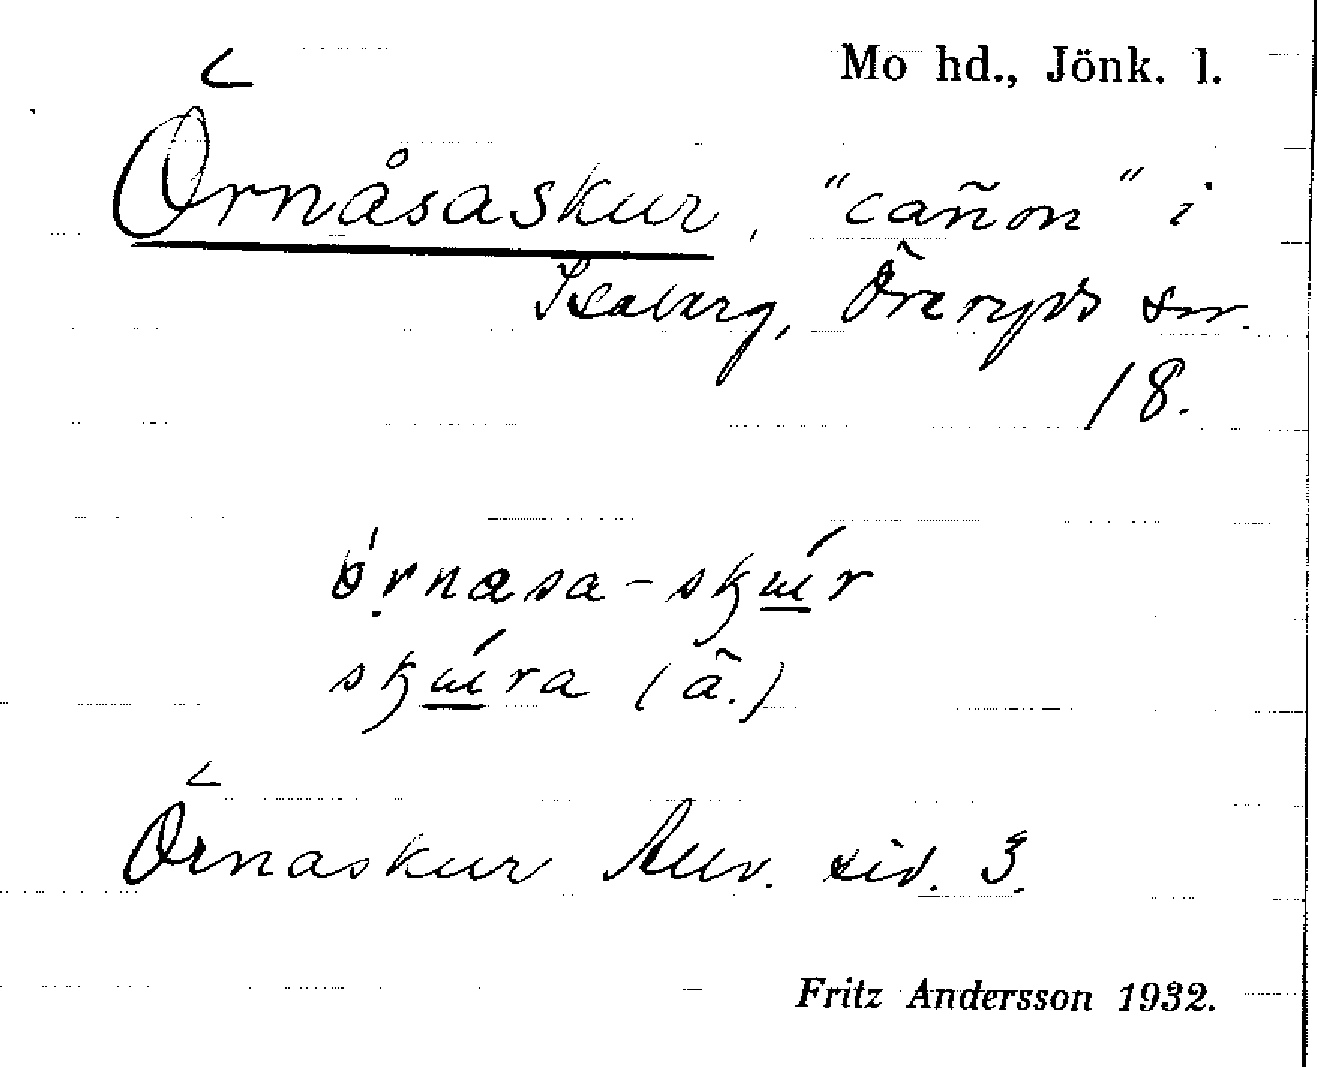 Mo hd., Jönk. l.
Örnåsaskur, "cañon" i
Isaberg, Öreryds sn.
18.
örnasa-skúr
skúra (ä.)
Örnaskur Auv. sid. 3.
Fritz Andersson 1932.